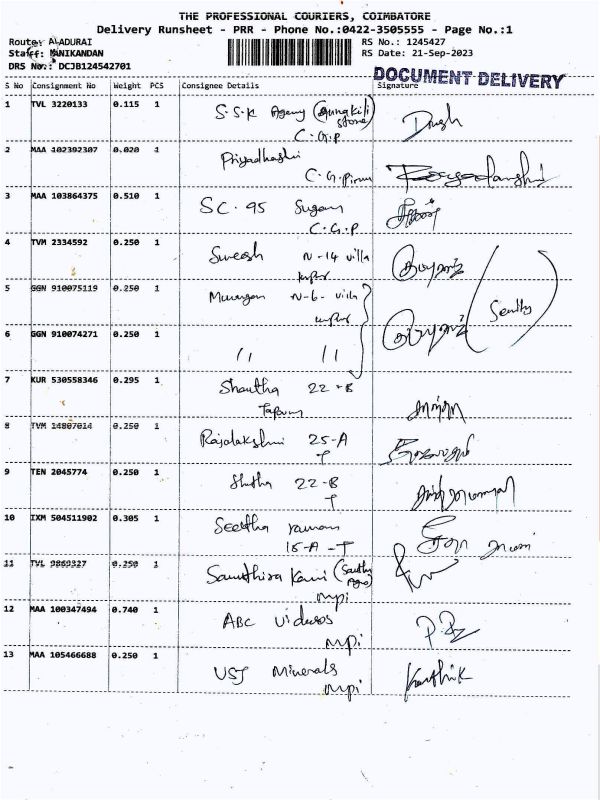 THE PROFESSIONAL COURIERS, COIMBATORE
Delivery Runsheet - PRR - Phone No.:0422-3505555 - Page No.:1
Route: ALADURAI RS No.: 1245427
Staff: MANIKANDAN RS Date: 21-Sep-2023
DRS No.: DCJB124542701
DOCUMENT DELIVERY
S No Consignment No Weight PCS Consignee Details Signature
1 TVL 3220133 0.115 1 S.S.K Agency
C.G.P
2 MAA 102392307 0.020 1 Priyadharshi
C.G.P
3 MAA 103864375 0.510 1 SC. 95 Sugam
C.G.P
4 TVM 2334592 0.250 1 Suresh N-14 villa
5 GGN 910075119 0.250 1 Murugan N-6- villa
6 GGN 910074271 0.250 1 " "
7 KUR 530558346 0.295 1 Shautha 22-B
8 TVM 14807014 0.250 1 Rajalakshmi 25-A
T
9 TEN 2045774 0.250 1 Shutha 22-B
T
10 IXM 504511902 0.305 1 Seetha raman
15-A -T
11 TVL 9869327 0.250 1 Samuthira Kani
mpi
12 MAA 100347494 0.740 1 ABC videos
mpi
13 MAA 105466688 0.250 1 UST Minerals Karthik
mpi